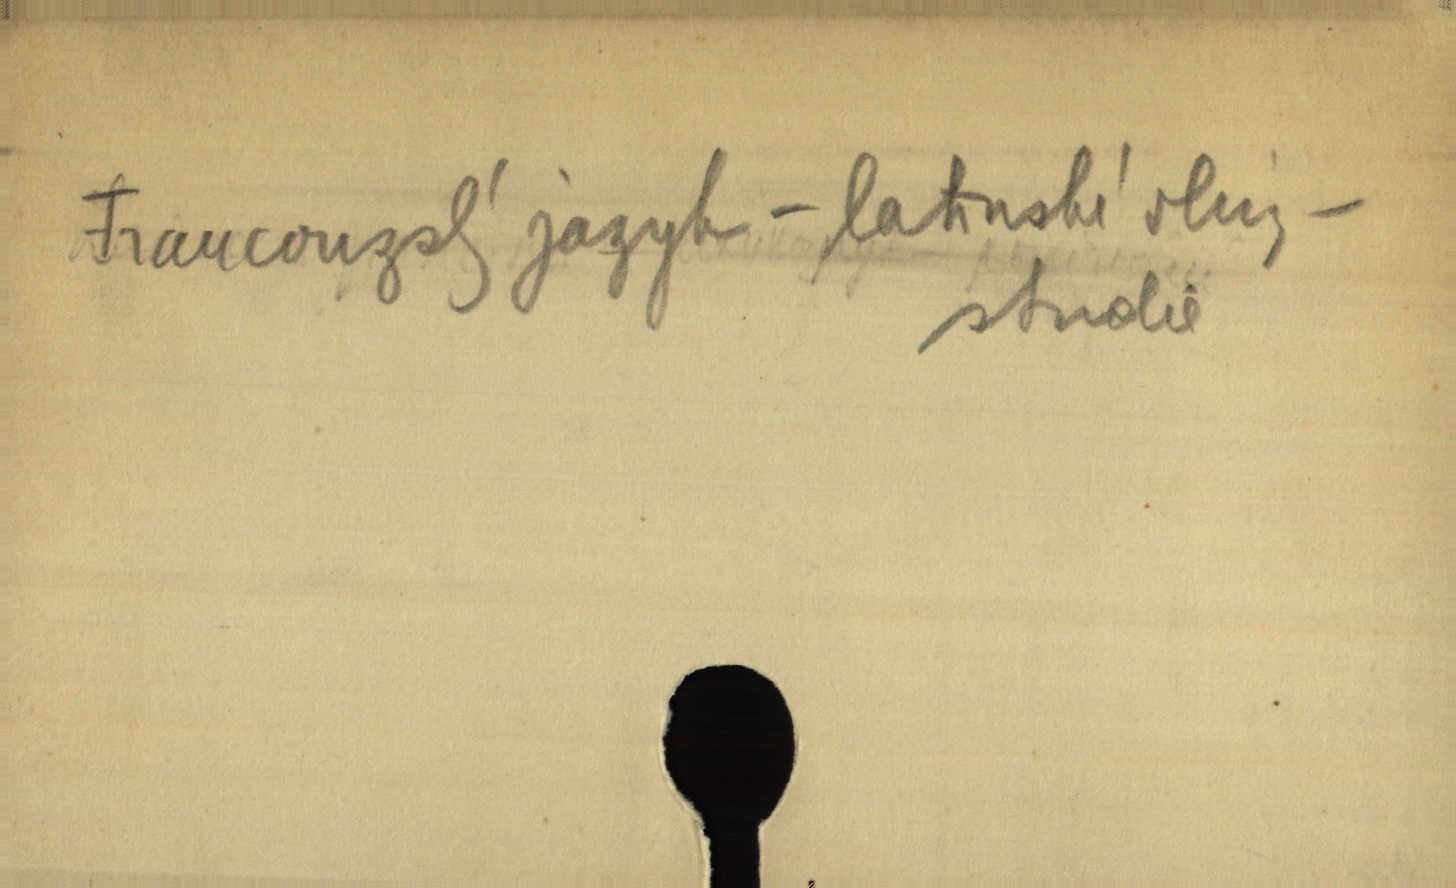 Francouzský jazyk - latinské vlivy -
studie